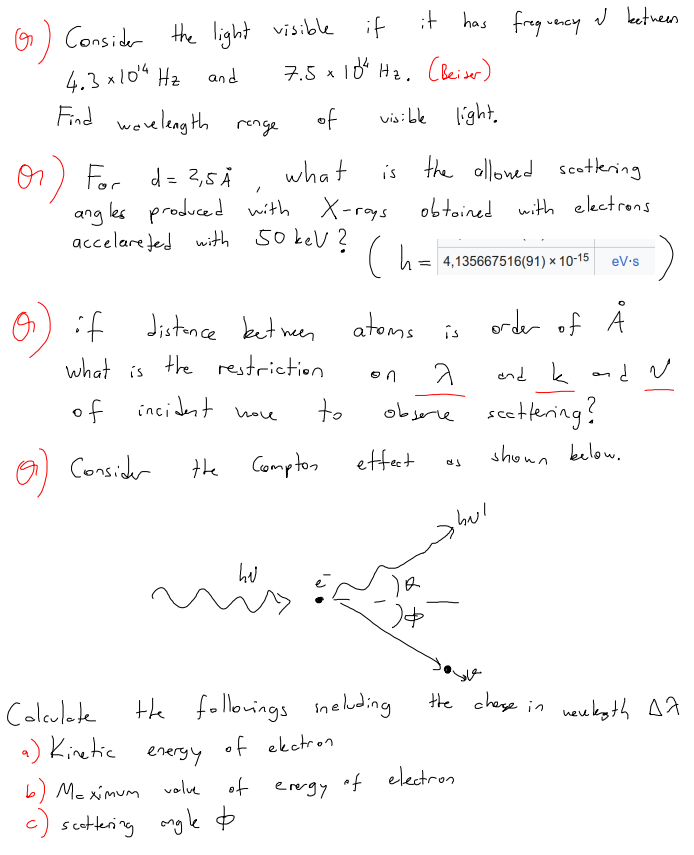 Q) Consider the light visible if it has frequency ν between
4.3 × 10¹⁴ Hz and 7.5 × 10¹⁴ Hz. (Beiser)
Find wavelength range of visible light.
Q) For d = 2,5 Å, what is the allowed scattering
angles produced with X-rays obtained with electrons
accelareted with 50 keV? ( h = 4,135667516(91) × 10⁻¹⁵ eV·s )
Q) if distance between atoms is order of Å
what is the restriction on λ and k and ν
of incident wave to observe scattering?
Q) Consider the Compton effect as shown below.
hν'
hν
e⁻
θ
ϕ
Calculate the followings including the change in wavelength Δλ
a) Kinetic energy of electron
b) Maximum value of energy of electron
c) scattering angle ϕ